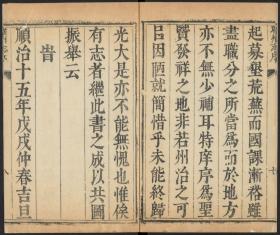 起墾荒蕪而國課漸裕雖
盡職分之所當為而於地方
亦不無少補耳特庠序為聖
賢發祥之地非若州治之可
因陋就簡惜乎未能終歸
光大是亦不能無愧也惟俟
有志者繼此書之成以共圖
振舉云
旹
順治十五年戊戌仲春吉旦